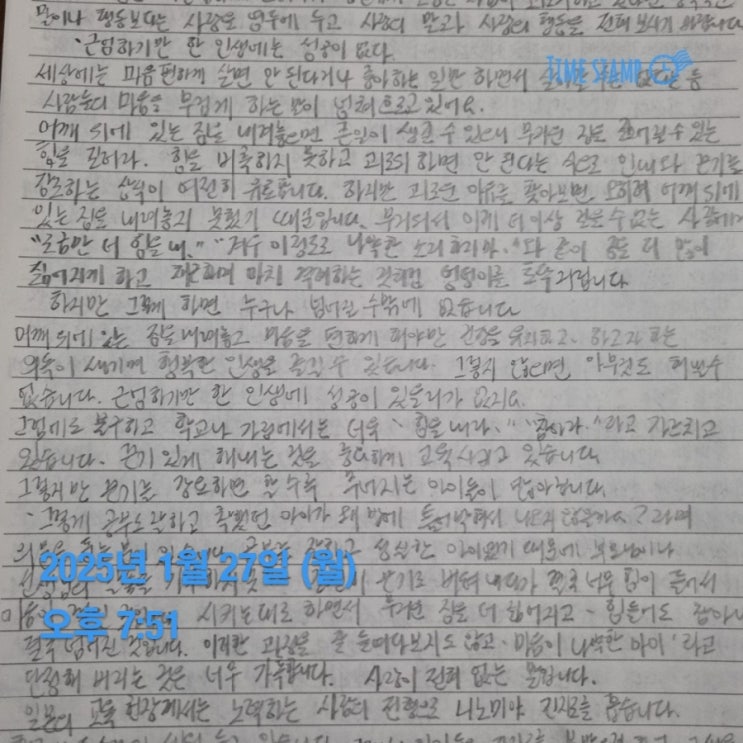 말이나 행동보다는 사랑을 염두에 두고 사랑의 말과 사랑의 행동을 전해 보시기 바랍니다
·근엄하기만 한 인생에는 성공이 없다.
세상에는 마음 편하게 살면 안 된다거나 좋아하는 일만 하면서 등
TIME STAMP
사람들의 마음을 무겁게 하는 말이 넘쳐흐르고 있어요.
어깨 위에 있는 짐을 내려놓으면 큰일이 생길 수 있으니 무거운 짐을 짊어질 수 있는
힘을 길러라. 힘을 비축하지 못하고 괴로워하면 안 된다는 식으로 인내와 끈기를
강조하는 상식이 여전히 유효합니다. 하지만 괴로운 이유를 찾아보면 오히려 어깨 위에
있는 짐을 내려놓지 못했기 때문입니다. 무거워서 이제 더 이상 걸을 수 없는 사람에게
"조금만 더 힘을 내." "겨우 이 정도로 나약한 소리 하지 마." 와 같이 짐을 더 많이
짊어지게 하고 마치 격려하는 것처럼 엉덩이를 두드립니다
하지만 그렇게 하면 누구나 넘어질 수밖에 없습니다
어깨 위에 있는 짐을 내려놓고 마음을 편하게 해야만 건강을 유지하고, 하고자 하는
의욕이 생기며 행복한 인생을 즐길 수 있습니다. 그렇지 않으면 아무것도 해낼 수
없습니다. 근엄하기만 한 인생에 성공이 있을 리가 없지요.
그럼에도 불구하고 학교나 가정에서는 더욱 "힘을 내라." "참아라."라고 가르치고
있습니다. 끈기 있게 해내는 것을 중요하게 교육시키고 있습니다
그렇지만 끈기는 강요하면 할수록 주저앉는 아이들이 많아집니다.
·그렇게 공부도 잘하고 착했던 아이가 왜 방에 틀어박혀서 나오지 않을까요?라며
의문을 성실한 아이였기 때문에 부모님이나
2025년 1월 27일 (월)
선생님의 끈기로 버텨내다가 결국 너무 힘이 들어서
오후 7:51
시키는 대로 하면서 무거운 짐을 더 짊어지고 · 힘들어도 참아내
결국 넘어진 것입니다. 이러한 과정을 잘 들여다보지도 않고 · 마음이 나약한 아이'라고
단정해 버리는 것은 너무 가혹합니다. 사랑이 전혀 없는 말입니다.
일본의 교육 현장에서는 노력하는 사람의 전형으로 니노미야 긴지로를 꼽습니다.